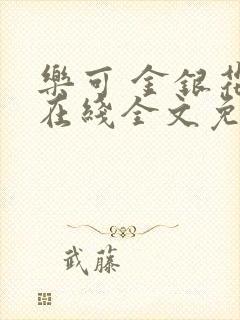 樂可 金銀花
在綫全文免
武藤